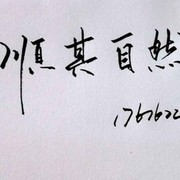 顺其自然